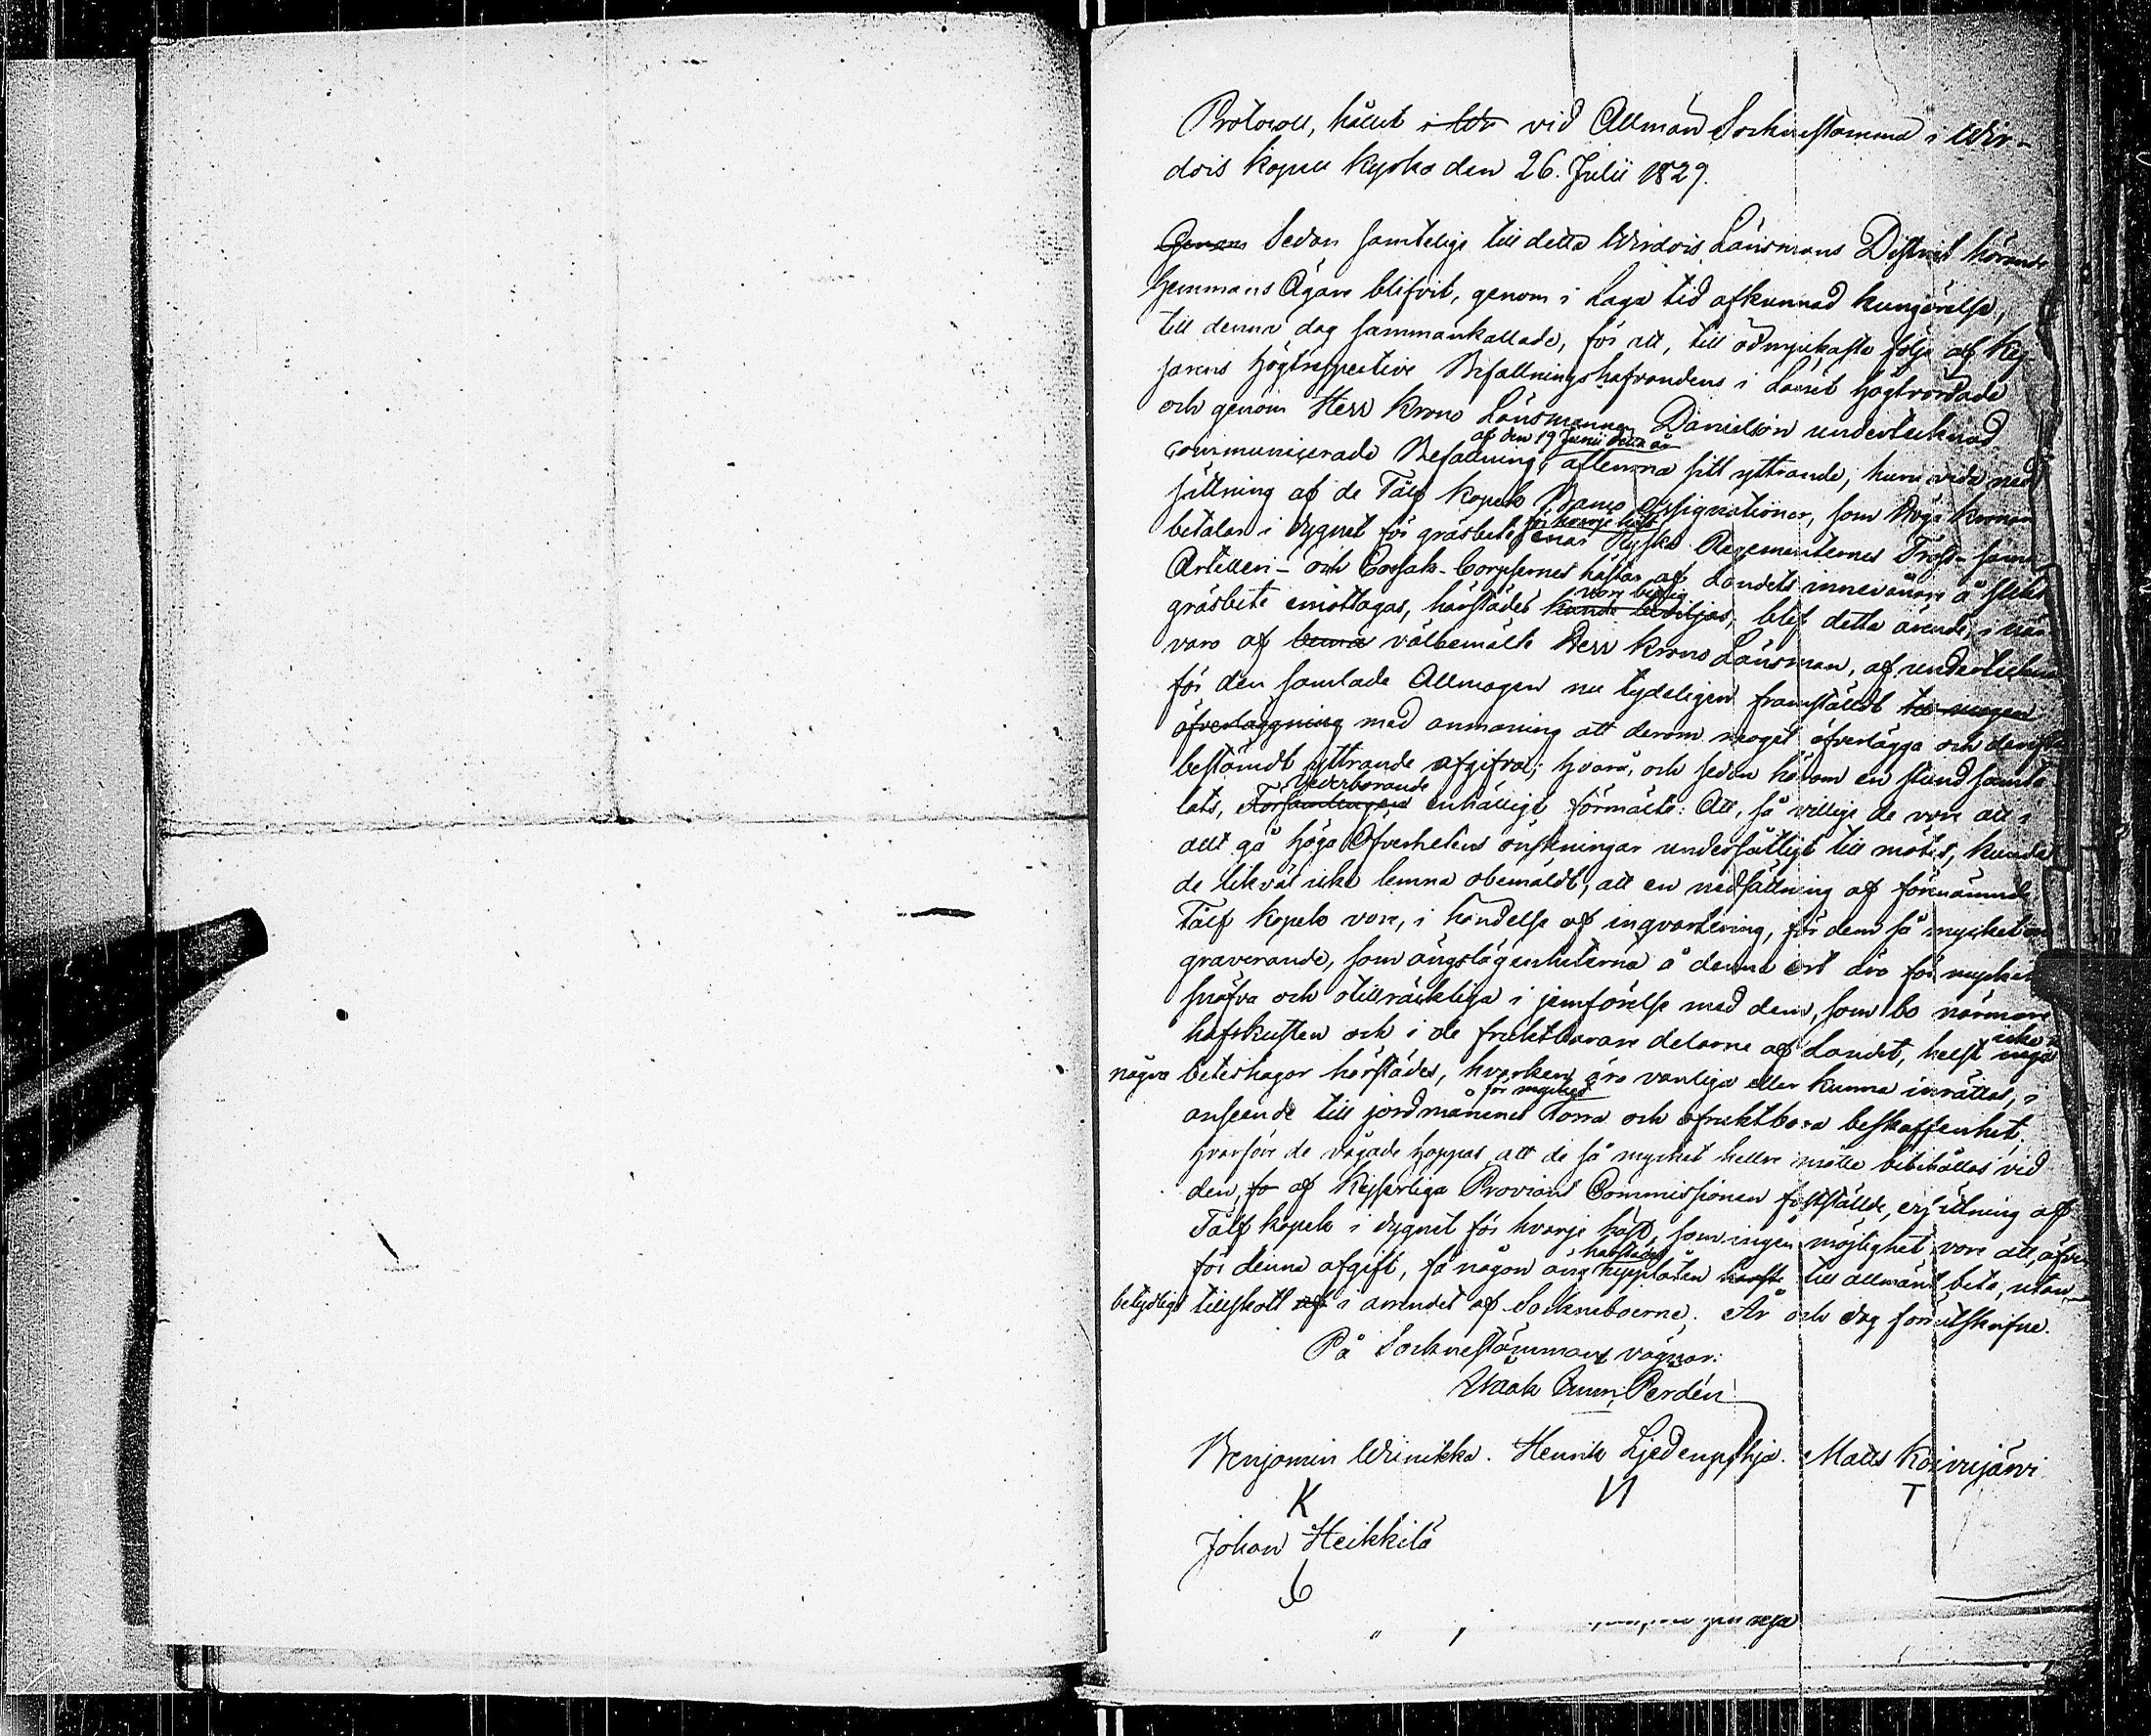 Protocoll, hållet i Wir vid Allmän Sockne stämma i Wir-
dois Kapell Kyrka den 26. Julii 1829.
Genom Sedan samtelige till detta Wirdois Länsmans District hörande
Hemmans Ägare blifvit, genom i Laga tid afkunnad kungörelse,
till denna dag sammankallade, för att, till ödmjukaste följe af Kej-
sarens Högtrespective Befallningshafvandens i Länet högtvördade
och genom Herr Krono Länsmannen Danielson undertecknad
af den 19 Junii detta år
communicerade Befallning, aflemna sitt yttrande, huru vida ned-
sättning af de Tolf Kopek Banco Assignationer, som Höga Kronan
för hvarje häst
betalar i dygnet för gräsbete, enär Ryska Regementernes Tross- samt
Artilleri- och Cosak-Corpsernes hästar af Landets innevånare å slikt
vore billig
gräsbete emottagas, härstädes kunde beviljas, blef detta ärende, i när-
varo af bema välbemälte Herr Krono Länsman, af undertecknad
för den samlade Allmogen nu tydeligen framställdt till nogen
öfverläggning med anmaning att derom noga öfverlägga och derefter
bestämdt yttrande afgifva; hvarå, och sedan härom en stund samta-
Vederbörande
lats, Församlingen enhälligt förmälte: Att, så villige de vore att i
allt gå Höga Öfverhetens önskningar undersåtligt till mötes, kunde
de likväl icke lemna obemäldt, att en nedsättning af förenämnde
Tolf Kopek vore, i händelse af inqvartering, för dem så mycket mer
graverande, som ängslägenheterna å denna ort äro för mycket
snäfva och otillräckliga i jemförelse med dem, som bo närmare
hafskusten och i de fruktbarare delarne af Landet, helst inga
icke
några beteshagar härstädes, hvarken äro vanliga eller kunna inrättas, i
för mycket
anseende till jordmånens torra och ofruktbara beskaffenhet;
Hvarföre de vågade hoppas att de så mycket hellre måtte bibehållas vid
den, fo af Kejserliga Proviant Commissionen fastställde, ersättning af
Tolf kopek i dygnet för hvarje häst, som ingen möjlighet vore att, äfven
härstädes
för denna afgift, få någon äng till allmänt bete, utan
betydligt tillskott af i arendet af Sockneboerne. År och dag förutskrifne.
På Sockne stämmans vägnar:
Isaak Perdén
Benjamin Winikka. Henrik Matts Koivujärvi
K И T
Johan Heikkilä
6